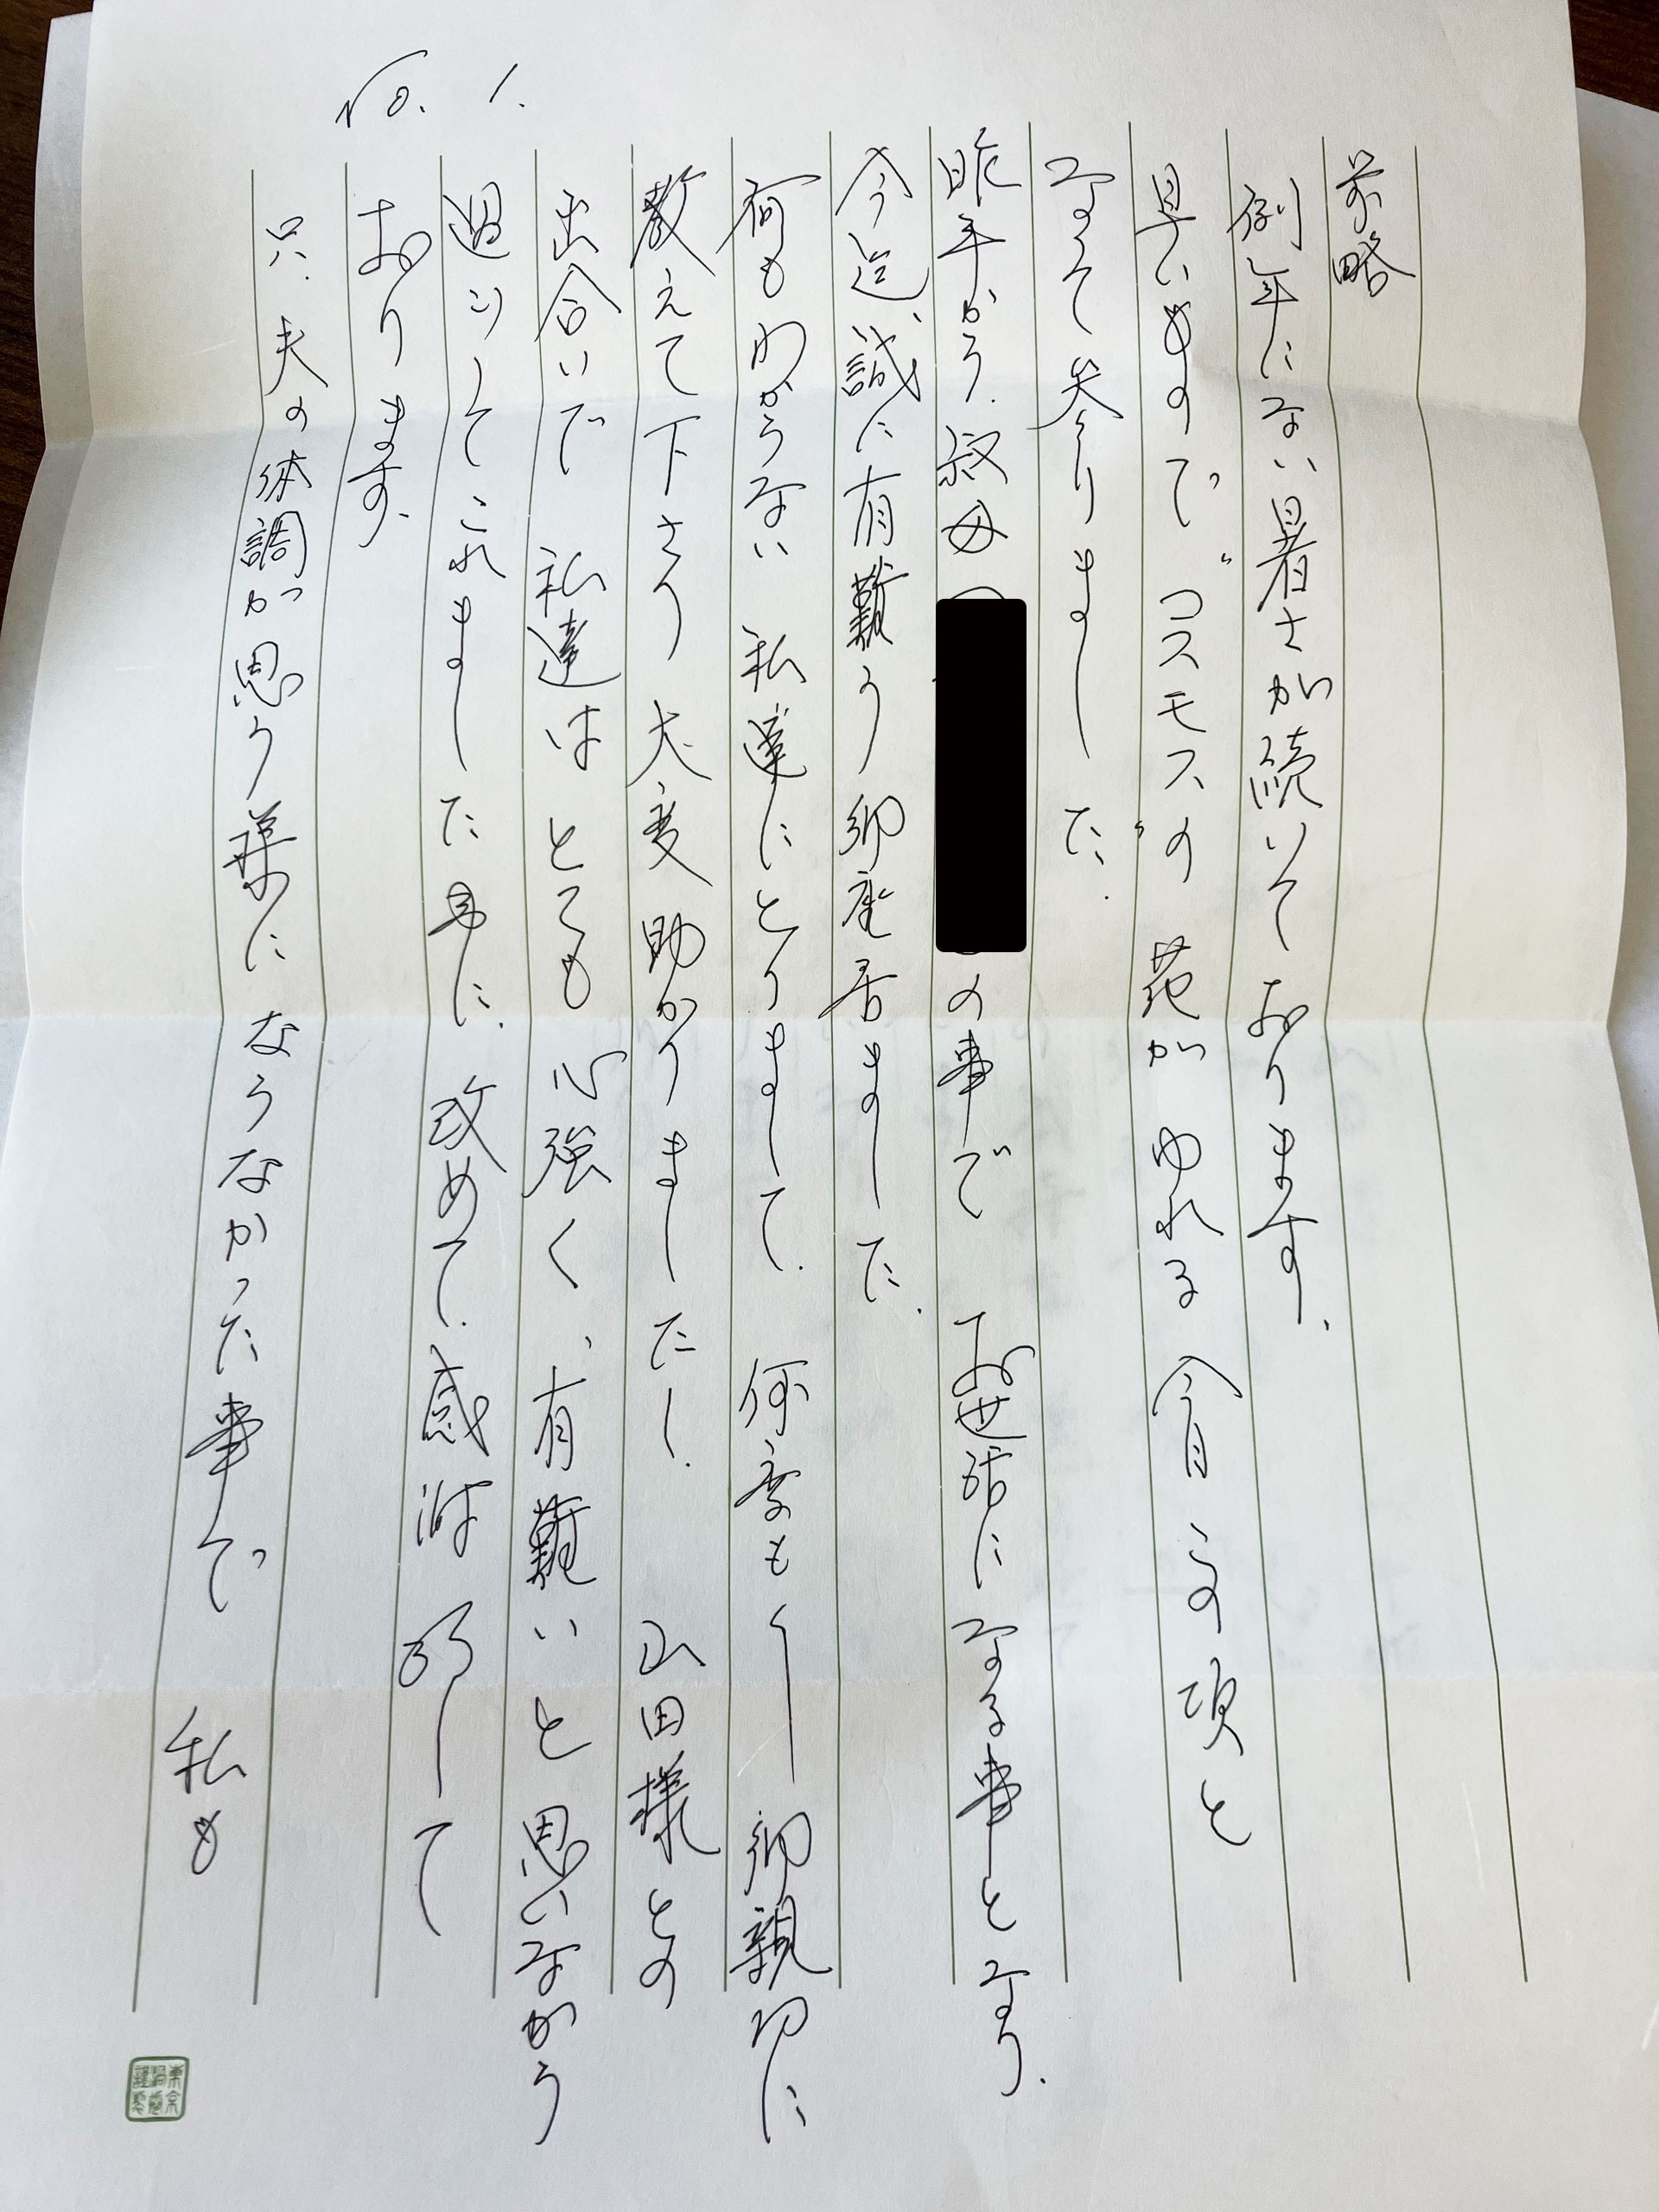 No. 1.
前略
例年にない暑さが続いております.
早いもので“コスモス”の花がゆれる今日この頃と
なって参りました.
昨年から.叔母(
の事で お世話になる事となり.
今迄、誠に有難う御座居ました.
何もわからない 私達にとりまして. 何度も〱 御親切に
教えて下さり大変助かりましたし. 山田様との
出合いで 私達は とても 心強く、有難いと思いながら
過ごしてこれました事に.改めて.感謝 致して
おります.
只.夫の体調が思う様に ならなかった事で 私も